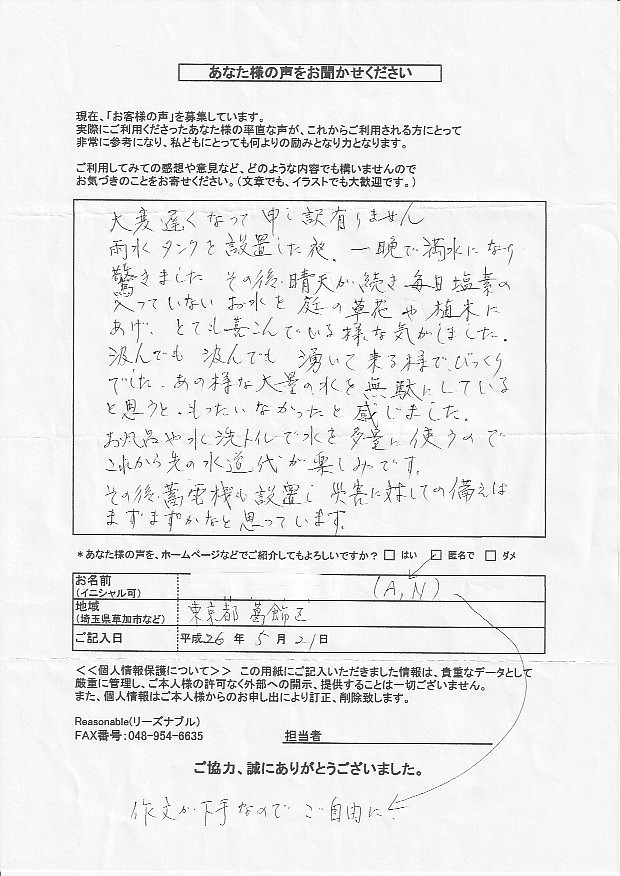 あなた様の声をお聞かせください
現在、「お客様の声」を募集しています。
実際にご利用くださったあなた様の率直な声が、これからご利用される方にとって
非常に参考になり、私どもにとっても何よりの励みとなり力となります。
ご利用してみての感想や意見など、どのような内容でも構いませんので
お気づきのことをお寄せください。(文章でも、イラストでも大歓迎です。)
大変遅くなって申し訳有りません
雨水タンクを設置した夜、一晩で満水になり
驚きました その後、晴天が続き毎日塩素の
入っていないお水を庭の草花や植木に
あげ、とても喜こんでいる様な気がしました.
汲んでも汲んでも湧いて来る様で、びっくり
でした. あの様な大量の水を無駄にしている
と思うと、もったいなかったと感じました.
お風呂や水洗トイレで水を多量に使うので
これから先の水道代が楽しみです。
その後、蓄電機も設置し災害に対しての備えは
まずまずかなと思っています.
*あなた様の声を、ホームページなどでご紹介してもよろしいですか? □ はい □ 匿名で □ ダメ
お名前
(イニシャル可)
(A,N)
地域
(埼玉県草加市など)
東京都葛飾区
ご記入日 平成26年 5月 21日
<<個人情報保護について>> この用紙にご記入いただきました情報は、貴重なデータとして
厳重に管理し、ご本人様の許可なく外部への開示、提供することは一切ございません。
また、個人情報はご本人様からのお申し出により訂正、削除致します。
Reasonable(リーズナブル)
FAX番号:048-954-6635 担当者
ご協力、誠にありがとうございました。
作文が下手なので ご自由に.